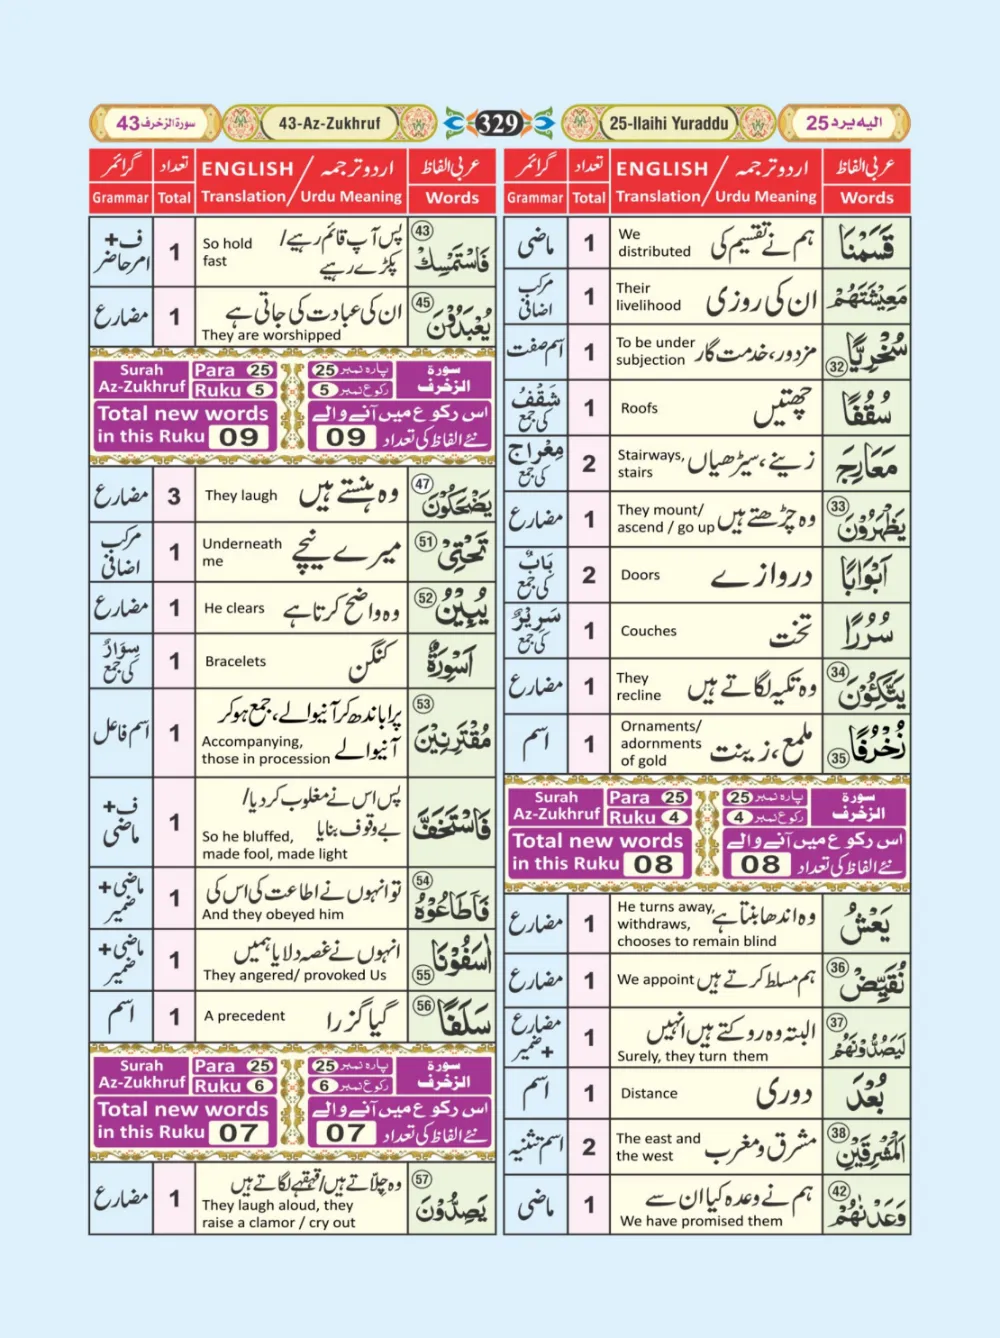 سورة الزخرف 43
43-Az-Zukhruf
329
25-Ilaihi Yuraddu
اليه يرد 25
عربی الفاظ اردو ترجمہ / ENGLISH تعداد گرائمر
Words Urdu Meaning / Translation Total Grammar
قَسَمْنَا ہم نے تقسیم کی We distributed 1 ماضی
مَعِيْشَتَهُمْ ان کی روزی Their livelihood 1 مرکب اضافی
سُخْرِيًّا ㉜ مزدور، خدمت گار To be under subjection 1 اسم صفت
سُقُفًا چھتیں Roofs 1 سَقْفٌ کی جمع
مَعَارِجَ زینے، سیڑھیاں Stairways, stairs 2 مِعْرَاجٌ کی جمع
يَظْهَرُوْنَ ㉝ وہ چڑھتے ہیں They mount/ ascend / go up 1 مضارع
اَبْوَابًا دروازے Doors 2 بَابٌ کی جمع
سُرُرًا تخت Couches 1 سَرِيْرٌ کی جمع
يَتَّكِئُوْنَ ㉞ وہ تکیہ لگاتے ہیں They recline 1 مضارع
زُخْرُفًا ㉟ ملمع، زینت Ornaments/ adornments of gold 1 اسم
Surah Az-Zukhruf Para 25 Ruku 4 پارہ نمبر 25 رکوع نمبر 4 سورة الزخرف
Total new words in this Ruku 08 اس رکوع میں آنے والے نئے الفاظ کی تعداد 08
يَعْشُ وہ اندھا بنتا ہے He turns away, withdraws, chooses to remain blind 1 مضارع
نُقَيِّضْ ㊱ ہم مسلط کرتے ہیں We appoint 1 مضارع
لَيَصُدُّوْنَهُمْ ㊲ البتہ وہ روکتے ہیں انہیں Surely, they turn them 1 مضارع + ضمیر
بُعْدَ دوری Distance 1 اسم
الْمَشْرِقَيْنِ ㊳ مشرق و مغرب The east and the west 2 اسم تثنیہ
وَعَدْنٰهُمْ ㊷ ہم نے وعدہ کیا ان سے We have promised them 1 ماضی
عربی الفاظ اردو ترجمہ / ENGLISH تعداد گرائمر
Words Urdu Meaning / Translation Total Grammar
فَاسْتَمْسِكْ ㊸ پس آپ قائم رہیے/ پکڑے رہیے So hold fast 1 ف+ امر حاضر
يُعْبَدُوْنَ ㊺ ان کی عبادت کی جاتی ہے They are worshipped 1 مضارع
Surah Az-Zukhruf Para 25 Ruku 5 پارہ نمبر 25 رکوع نمبر 5 سورة الزخرف
Total new words in this Ruku 09 اس رکوع میں آنے والے نئے الفاظ کی تعداد 09
يَضْحَكُوْنَ ㊼ وہ ہنستے ہیں They laugh 3 مضارع
تَحْتِيْ 51 میرے نیچے Underneath me 1 مرکب اضافی
يُبِيْنُ 52 وہ واضح کرتا ہے He clears 1 مضارع
اَسْوِرَةٌ کنگن Bracelets 1 سِوَارٌ کی جمع
مُقْتَرِنِيْنَ 53 پرا باندھ کر آنیوالے، جمع ہو کر آنیوالے Accompanying, those in procession 1 اسم فاعل
فَاسْتَخَفَّ پس اس نے مغلوب کر دیا/ بے وقوف بنایا So he bluffed, made fool, made light 1 ف+ ماضی
فَاَطَاعُوْهُ 54 تو انہوں نے اطاعت کی اس کی And they obeyed him 1 ماضی+ ضمیر
اٰسَفُوْنَا 55 انہوں نے غصہ دلایا ہمیں They angered/ provoked Us 1 ماضی+ ضمیر
سَلَفًا 56 گیا گزرا A precedent 1 اسم
Surah Az-Zukhruf Para 25 Ruku 6 پارہ نمبر 25 رکوع نمبر 6 سورة الزخرف
Total new words in this Ruku 07 اس رکوع میں آنے والے نئے الفاظ کی تعداد 07
يَصِدُّوْنَ 57 وہ چلّاتے ہیں/ قہقہے لگاتے ہیں They laugh aloud, they raise a clamor / cry out 1 مضارع